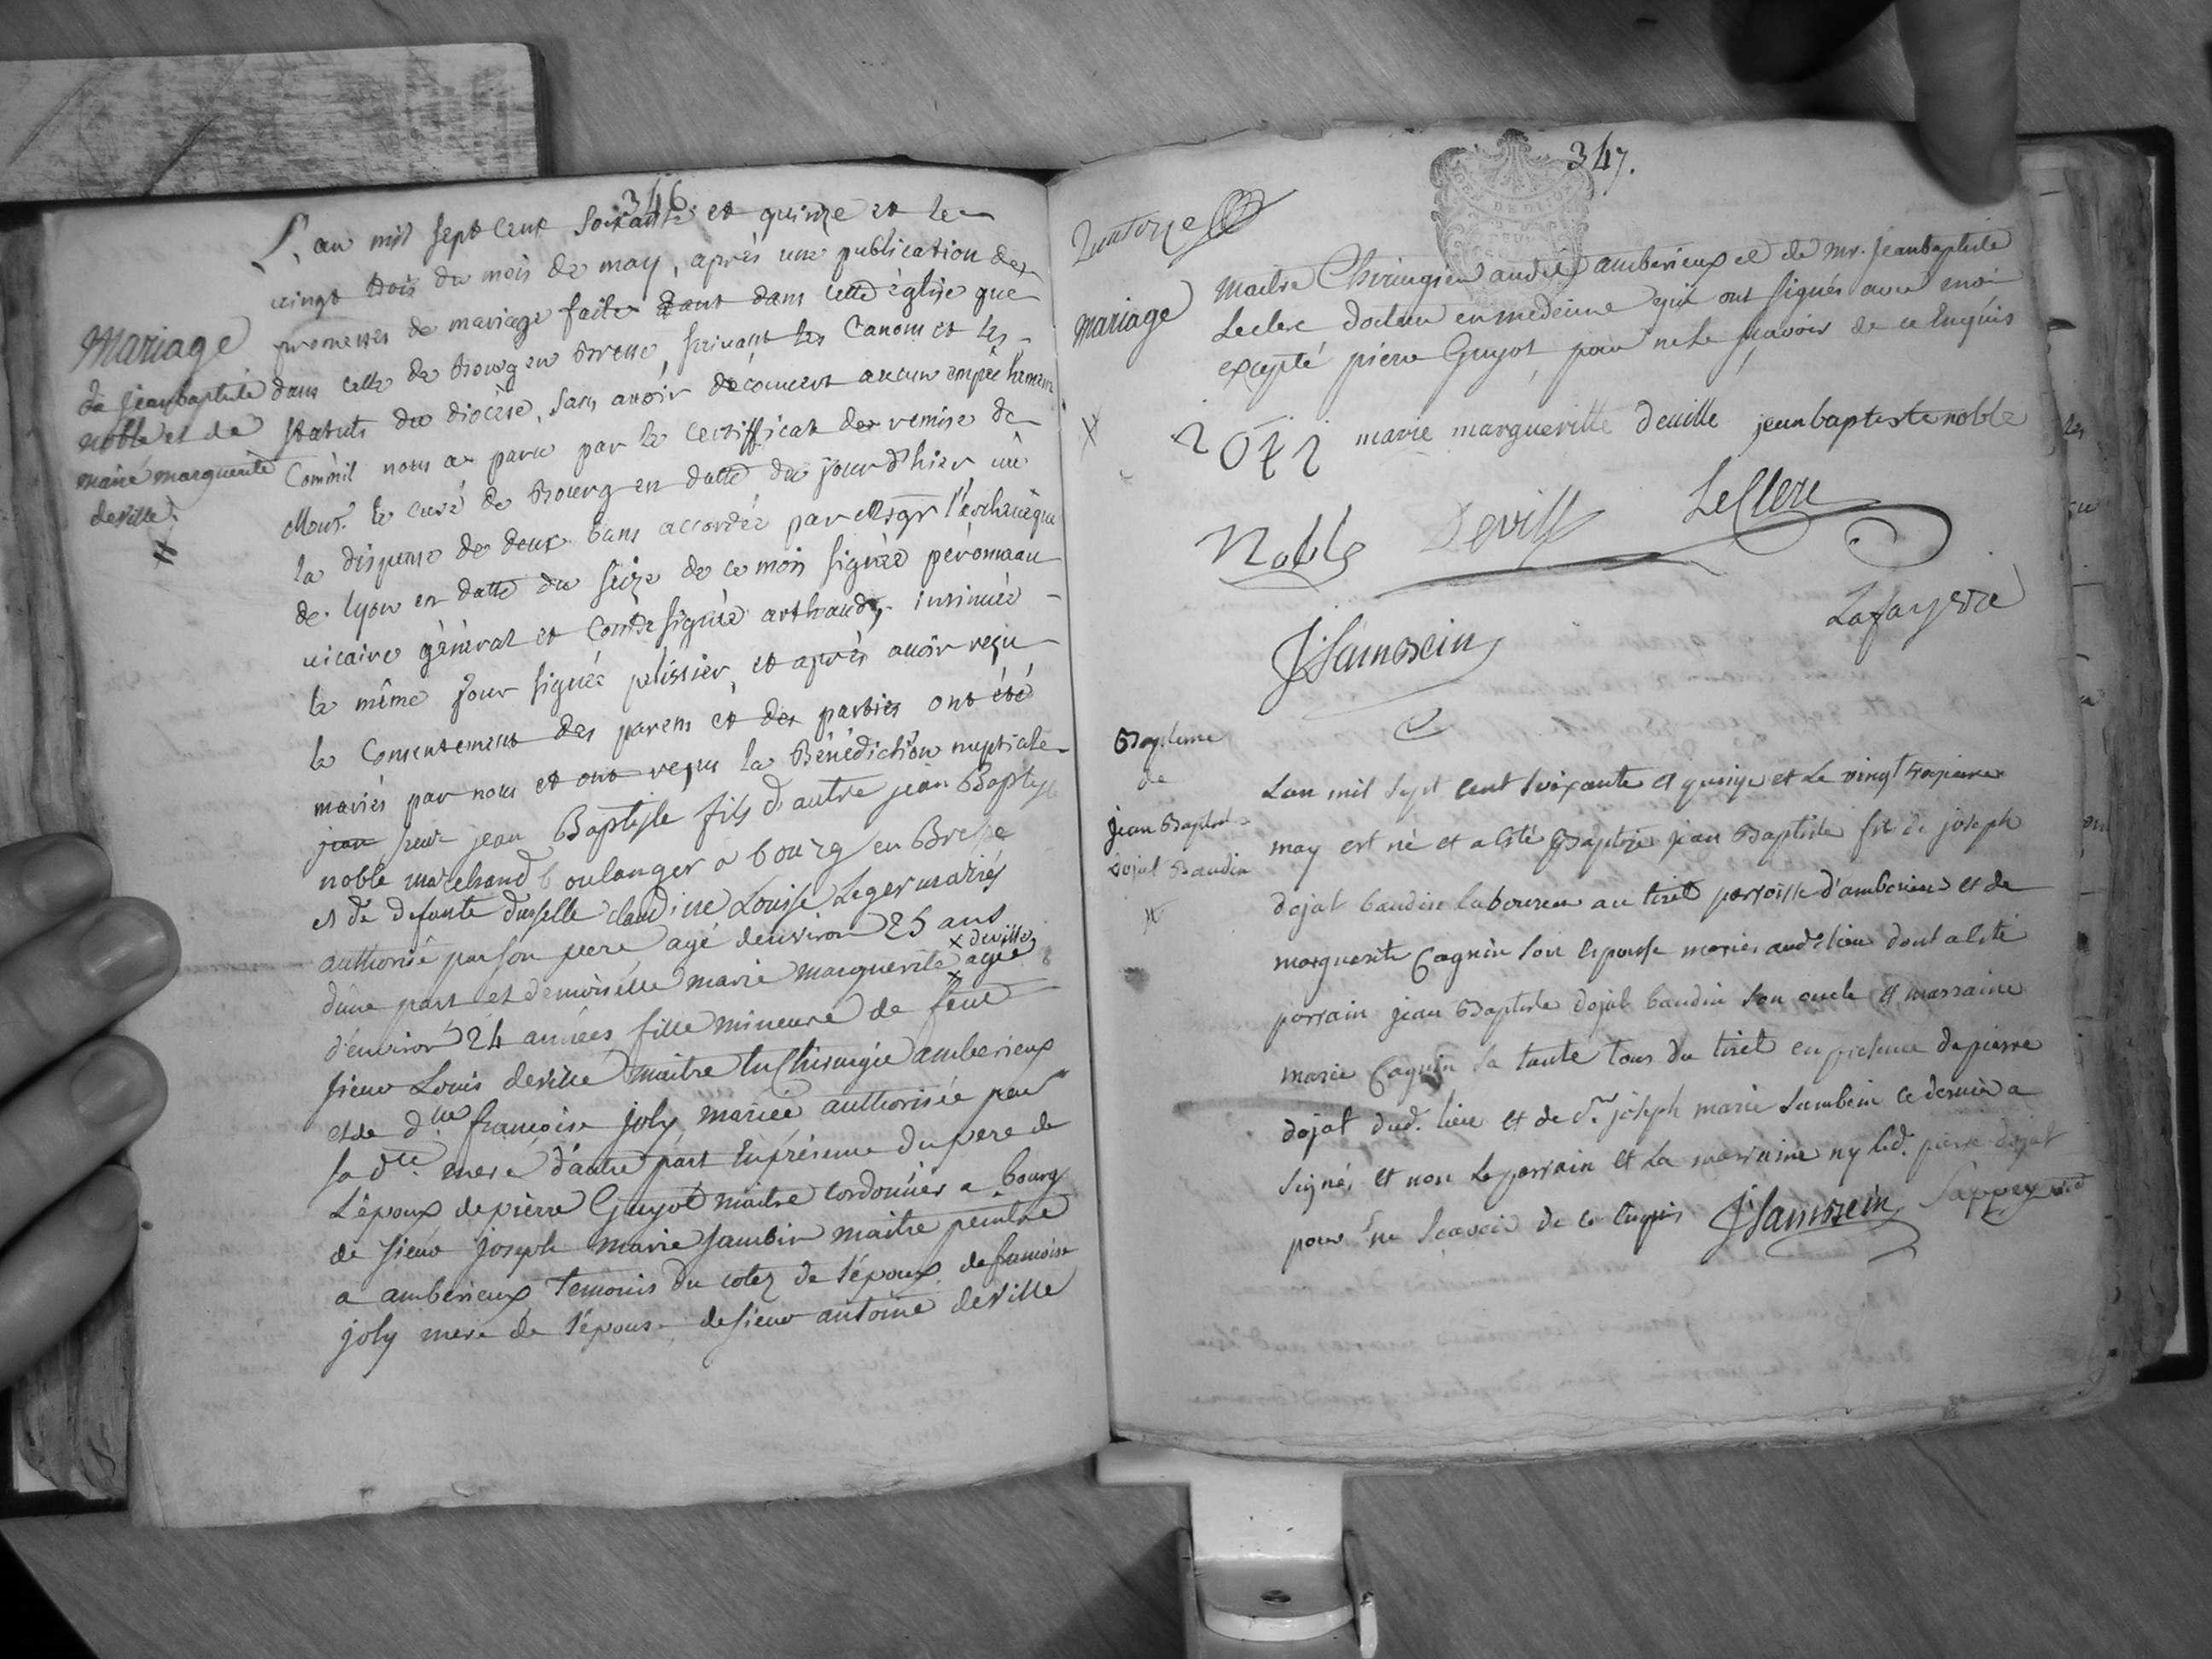 346.
L'an mil sept cent soixante et quinze et le
vingt trois du mois de may, après une publication des
promesses de mariage faite dans cette église que
dans celle de Bourg en Bresse, suivant les Canons et les
statuts du diocèse, sans avoir découvert aucun empêchement
Comm'il nous a paru par le certifficat de remise de
Monsr. le curé de Bourg en datte du jour d'hier vû
la dispense de deux bans accordée par Msgr l'archevêque
de lyon en datte du seize de ce mois signée peromeau
vicaire général et signée arthaud, insinuée
le même jour signée pelissier, et après avoir reçu
le Consentement des parens et des parties ont été
mariés par nous et ont reçus la Bénédiction nuptiale
sieur jean Baptiste fils d'autre jean Baptiste
noble marchand boulanger a bourg en Bresse
et de defunte dmselle claudine Louise Leger mariés
authorisé par son pere agé denviron 25 ans
x deville
d'une part et demoiselle marie marguerite x agée
d'environ 24 années fille mineure de feue
sieur Louis deville maitre en Chirurgie amberieux
et de dlle françoise joly mariée authorisée par
sa dte. mere d'autre part En présence du pere de
L'époux de pierre Guyot maitre cordonnier a bourg
de sieur joseph marie sambin maitre peintre
a amberieux Temoins du cotez de l'époux de francoise
joly mere de l'épouse de sieur antoine deville
Mariage
de jeanbaptiste
noble et de
marie marguerite
deville
347.
maitre Chirurgien audit amberieux et de mr. jeanbaptiste
Leclerc docteur en medecine qui ont signés avec moi
excepté pierre Guyot pour ne le sçavoir de ce Enquis
mariage
joly marie margueritte deuille jeanbaptiste noble
Noble Devill LeClerc
JSambein
Bapteme
de
jean Baptiste
dojat Baudin
Lan mil sept cent soixante et quinze et le vingt troizieme
may est né et a été Baptizé jean Baptiste fils de joseph
dojat baudin laboureur au tiret parroisse d'amberieux et de
marguerite Cagnin son epouse mariés audt lieu dont a été
parrain jean Baptiste dojat baudin son oncle et marraine
marie Cagnin sa tante tous du tiret en presence de pierre
dojat dud. lieu et de sr joseph marie sambein ce dernier a
signé, et non le parrain et la marraine ny led. pierre dojat
pour ne scavoir de ce Enquis JSambein